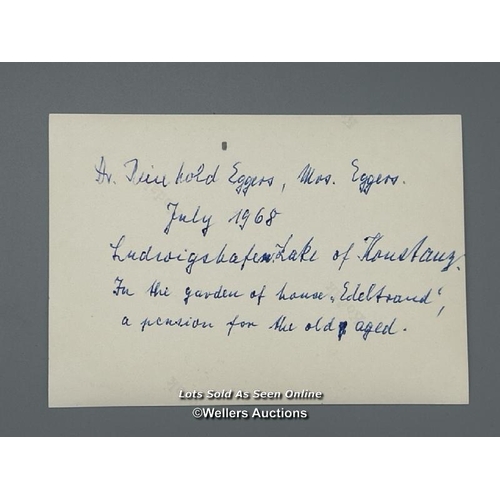 Dr. Reinhold Eggers, Mrs. Eggers.
July 1968
Ludwigshafen Lake of Konstanz.
In the garden of house „Edeltraud",
a pension for the old aged.
Lots Sold As Seen Online
©Wellers Auctions